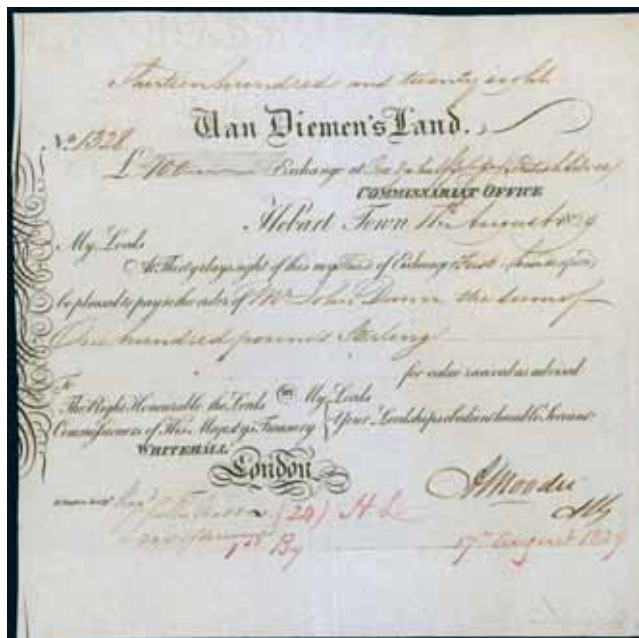 Thirteen hundred and twenty eight
Van Diemen's Land.
No. 1328
£ 100 Exchange at
COMMISSARIAT OFFICE
Hobart Town 11th August 1829
My Lords
At Thirty days sight of this my of Exchange
be pleased to pay to the order of Mr. John Dunn the sum of
One hundred pounds Sterling
for value received as advised
To
The Right Honourable the Lords My Lords
Commissioners of His Majestys Treasury Your Lordships obedient humble Servant
WHITEHALL
London
A Moodie
(24)
17th August 1829